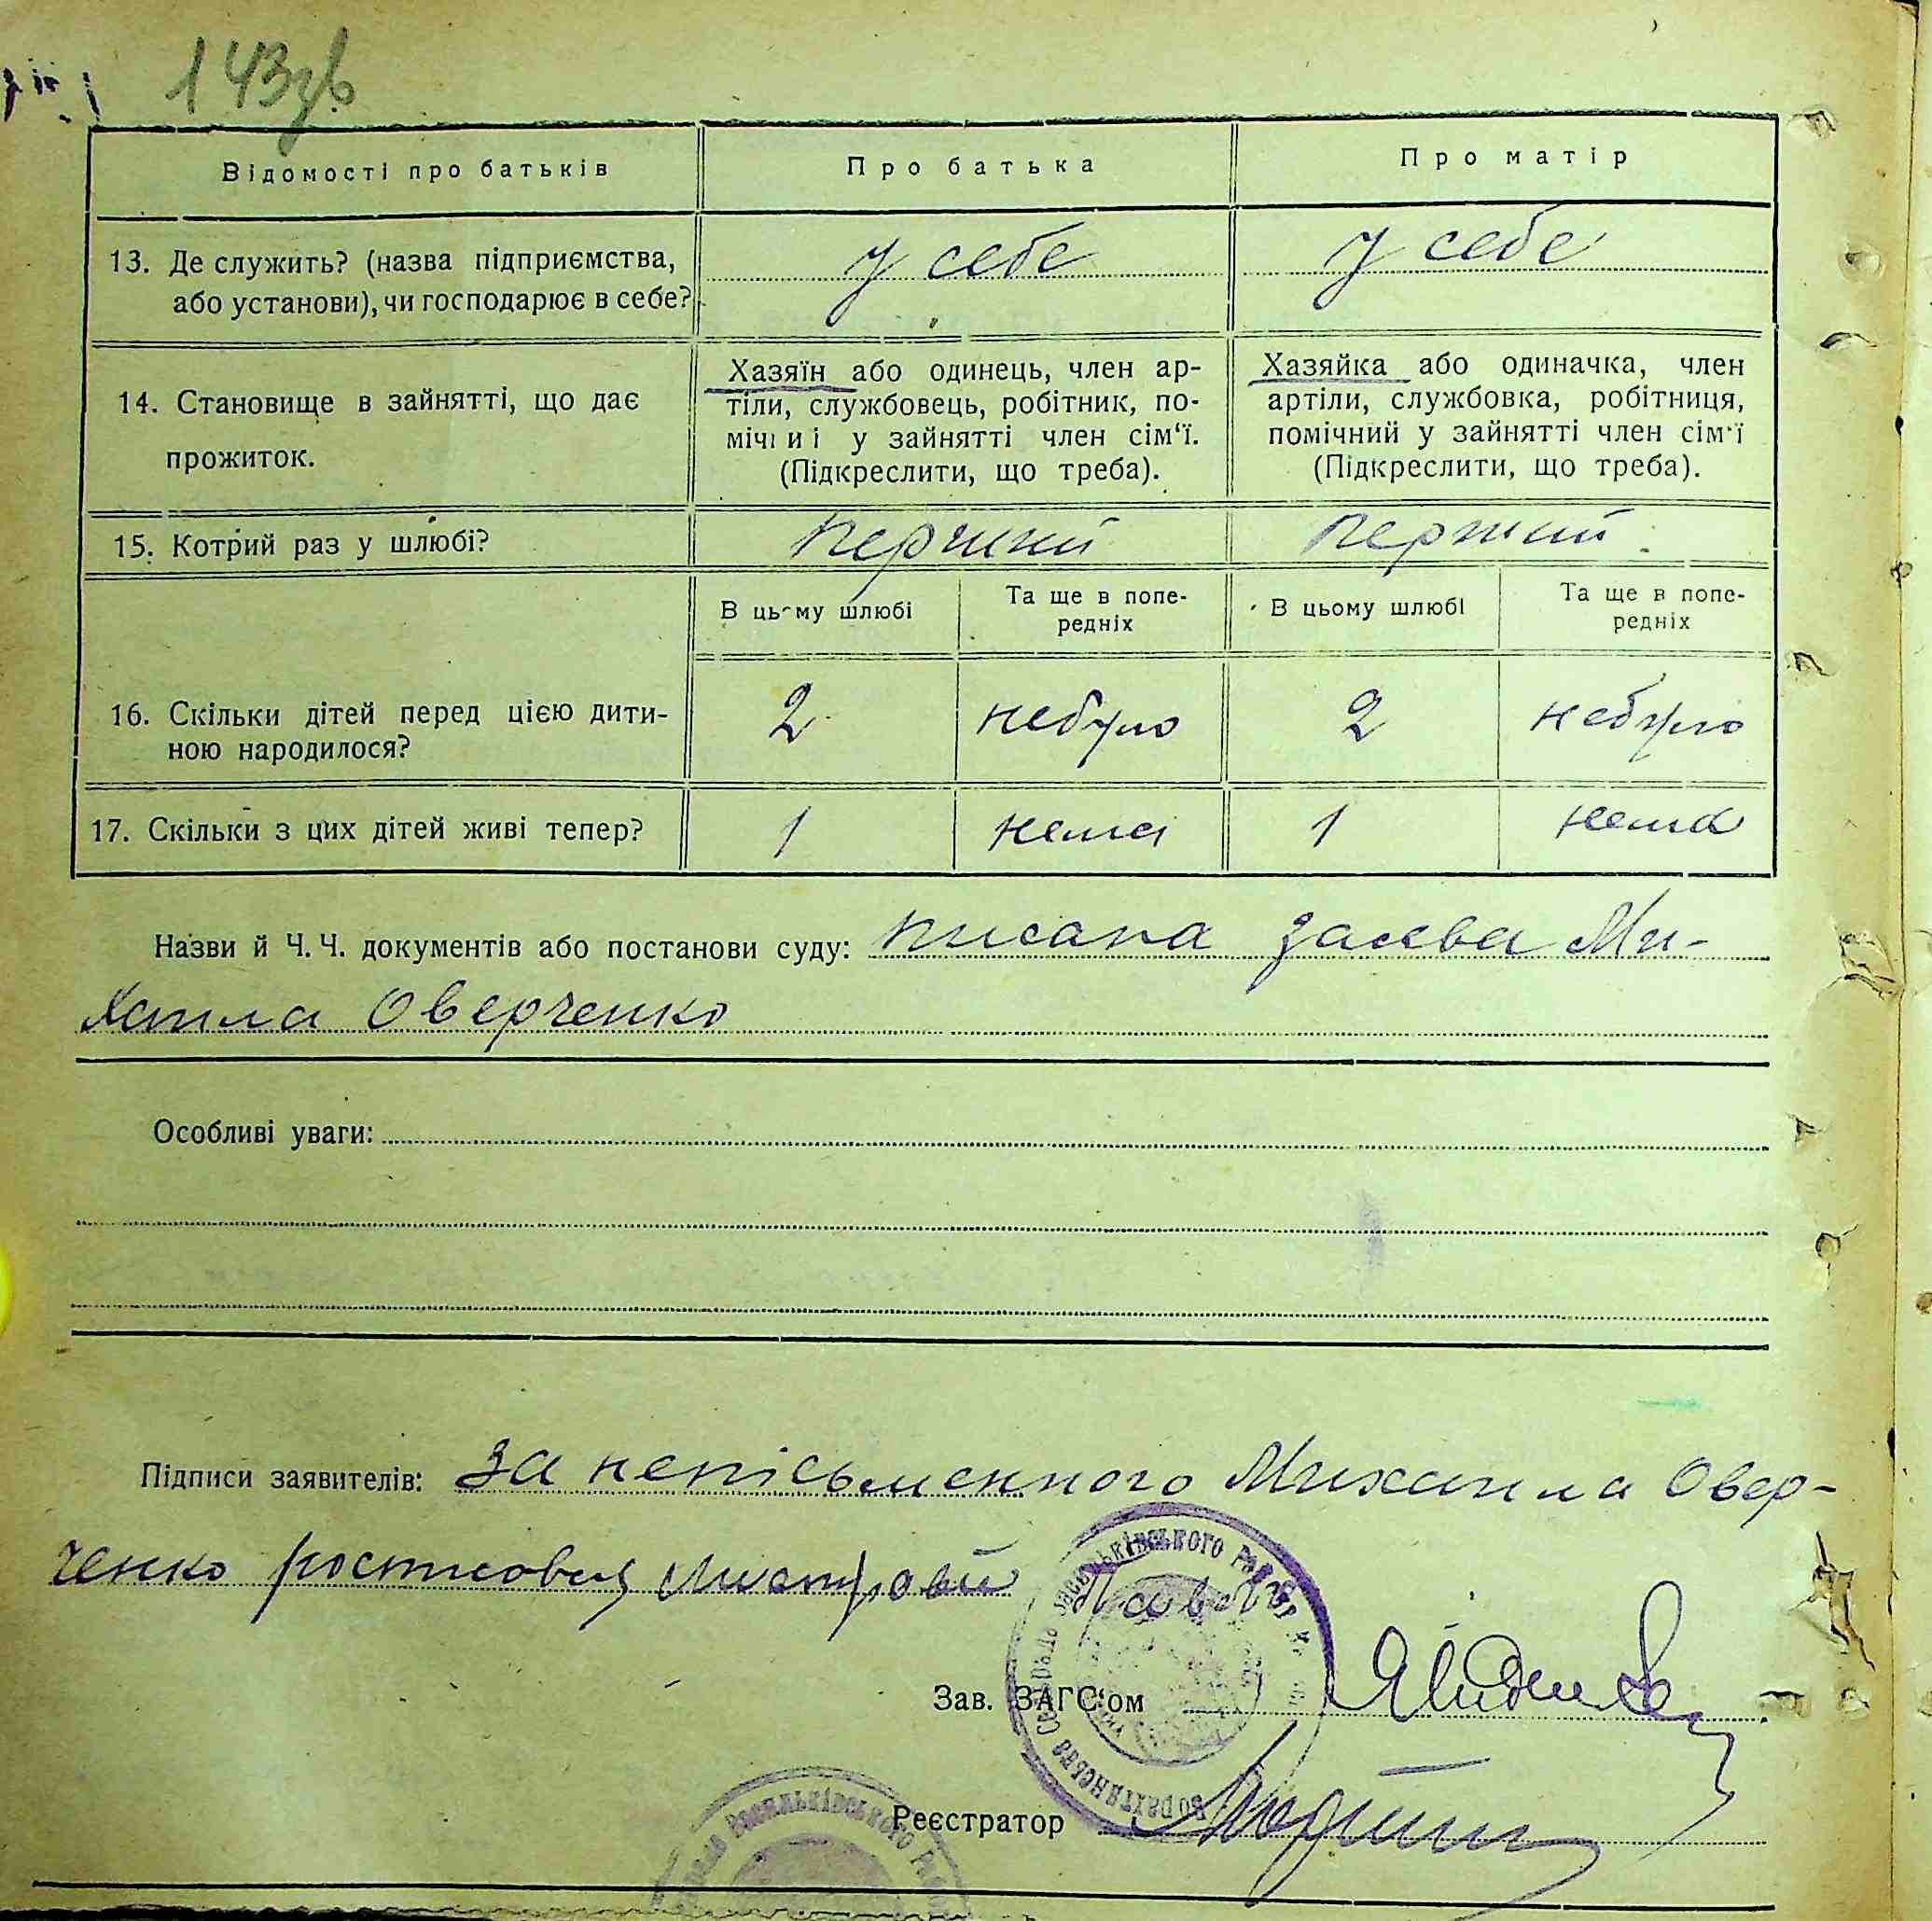 143зв
Відомості про батьків
Про батька
Про матір
13. Де служить? (назва підприємства,
або установи), чи господарює в себе?
у себе
у себе
14. Становище в зайнятті, що дає
прожиток.
Хазяїн або одинець, член ар-
тіли, службовець, робітник, по-
мічний у зайнятті член сім'ї.
(Підкреслити, що треба).
Хазяйка або одиначка, член
артіли, службовка, робітниця,
помічний у зайнятті член сім'ї
(Підкреслити, що треба).
15. Котрий раз у шлюбі?
перший
перший
В цьому шлюбі
Та ще в попе-
редніх
В цьому шлюбі
Та ще в попе-
редніх
16. Скільки дітей перед цією дити-
ною народилося?
2
небуло
2
небуло
17. Скільки з цих дітей живі тепер?
1
нема
1
нема
Назви й Ч. Ч. документів або постанови суду: писана заява Ми-
хаила Оверченко
Особливі уваги:
Підписи заявителів: За непісьменного Михаила Овер-
ченко ростисовця
Васильківського
Зав. ЗАГС'ом
Реєстратор
Васильківського